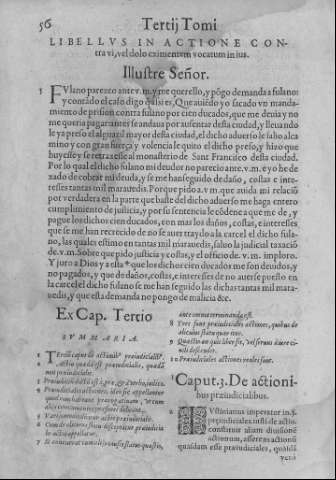 56 Tertij Tomi
LIBELLVS IN ACTIONE CON-
tra vi, vel dolo eximentem vocatum in ius.
Illustre Señor.
1 FVlano parezco ante v.m. y me querello, y pōgo demanda a fulano:
y contādo el caso digo q̄ assi es, Que auiēdo yo sacado vn manda-
miento de prision contra fulano por cien ducados, que me deuia y no
me queria pagar antes se andaua por ausentar desta ciudad, y lleuando
le ya preso el alguazil mayor desta ciudad, el dicho aduerso le salio al ca
mino y con gran fuerça y violencia le quito el dicho preso, y hizo que
huyesse y se retraxesse al monasterio de Sant Francisco desta ciudad.
Por lo qual el dicho fulano mi deudor no parecio ante.v.m. e yo he de
xado de cobrar mi deuda, y se me han seguido de daño, costas e inte-
resses tantas mil marauedis. Porque pido a.v.m. que auida mi relaciō
por verdadera en la parte que baste del dicho aduerso me haga entero
cumplimiento de justicia, y por su sentencia le cōdene a que me de, y
pague los dichos cien ducados, con mas los daños, costas, e intereses
que se me han recrecido de no se auer traydo a la carcel el dicho fula-
no, las quales estimo en tantas mil marauedis, saluo la judicial taxaciō
de.v.m. Sobre que pido justicia y costas, y el officio de.v.m. imploro.
Y juro a Dios y a esta ✝ que los dichos cien ducados me son deudos, y
no pagados, y que de daños, costas, e interesses de no auerse puesto en la
carcel el dicho fulano se me han seguido las dichas tantas mil mara-
uedis, y que esta demanda no pongo de malicia &c.
Ex Cap. Tertio
SVMMARIA.
1 Tertij capitis de actionib⁹ praeiudicialib⁹.
2 Actio quaedā est praeiudicialis, quaedā
non praeiudicialis.
3 Praeiudicialis
4 Praeiudiciales actiones, ideo sic appellantur
quod
alter
5
6
de actio appellatur.
7
ante omnia terminanda est.
8 Tres sunt praeiudiciales actiones, quibus de
9 Quaestio an quis liber sit, vel seruus a iure ci-
uili descendit.
10 Praeiudiciales actiones reales sunt.
Caput.3. De actioni-
bus praeiudicialibus.
IVstinianus imperator in.§.
praeiudiciales.insti.de actio.
constituit aliam diuisionē
actionum, asserens actionū
quasdam esse praeiudiciales, quasdā